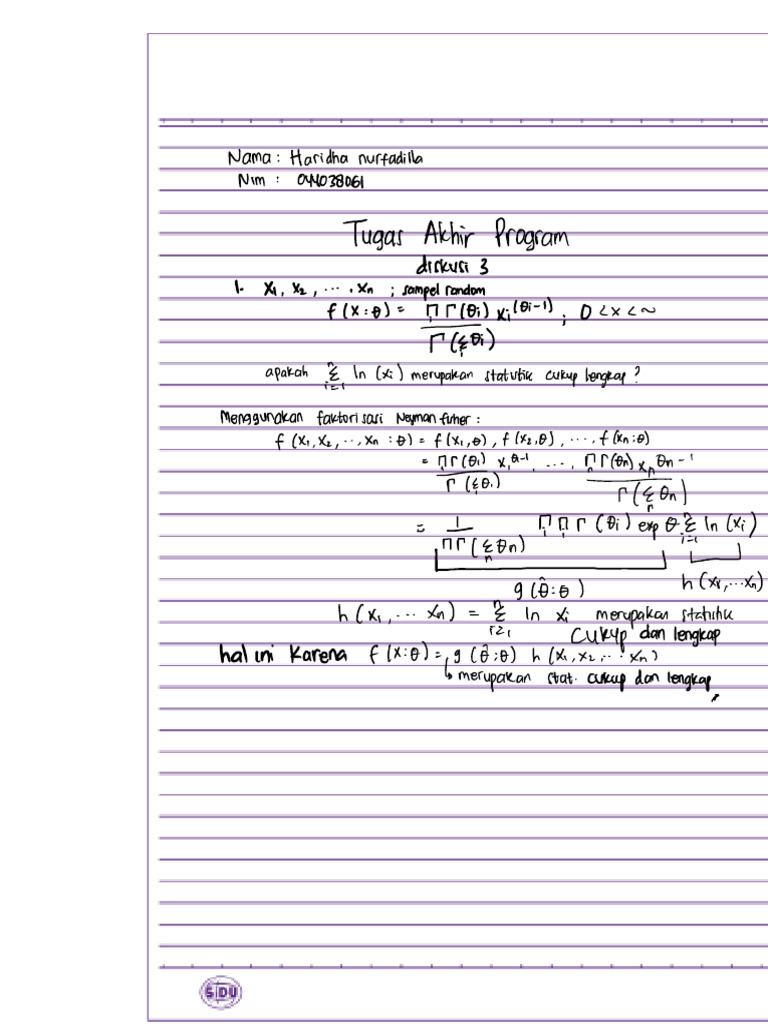 Nama : Haridha nurfadilla
Nim : 044038061
Tugas Akhir Program
diskusi 3
1. X₁, X₂, ... , Xₙ ; sampel random
f(x:θ) = Π Γ(θi) xi^(θi-1) / Γ(Σ θi) ; 0 < x < ~
apakah Σ_{i=1}^{n} ln (xi) merupakan statistik cukup lengkap ?
Menggunakan faktorisasi Neyman fisher :
f(x₁, x₂, ..., xₙ : θ) = f(x₁,θ), f(x₂,θ), ..., f(xₙ:θ)
= Π Γ(θi) x₁^{θi-1} / Γ(Σ θi) , ..., Π Γ(θn) xₙ^{θn-1} / Γ(Σ θn)
= 1 / ΠΓ(Σ θn) Π Π Γ(θi) exp θ Σ_{i=1}^{n} ln (xi)
g(θ̂:θ) h(x₁,...xₙ)
h(x₁, ... xₙ) = Σ_{i=1}^{n} ln xi merupakan statistik
cukup dan lengkap
hal ini karena f(x:θ) = g(θ̂;θ) h(x₁, x₂, ... xₙ)
↳ merupakan stat. cukup dan lengkap
SIDU